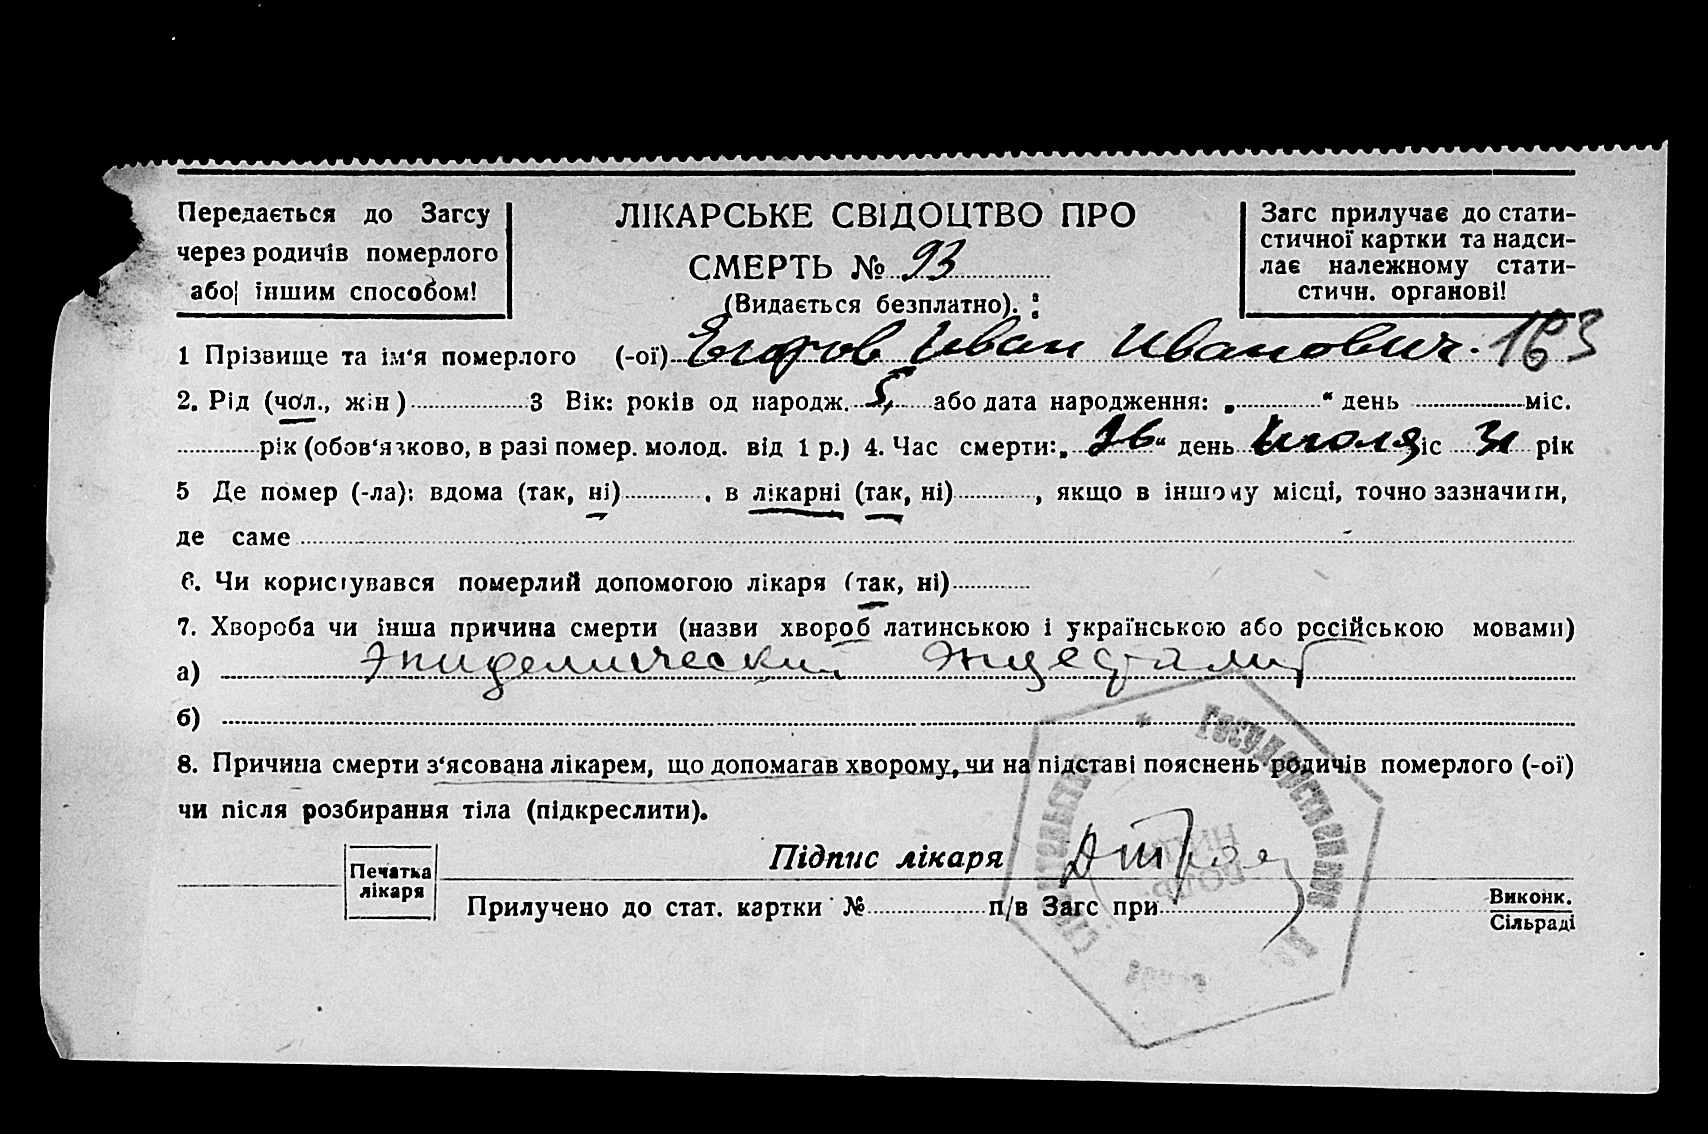 Передається до Загсу
через родичів померлого
або іншим способом!
ЛІКАРСЬКЕ СВІДОЦТВО ПРО
СМЕРТЬ № 93
(Видається безплатно).
Загс прилучає до стати-
стичної картки та надси-
лає належному стати-
стичн. органові!
1 Прізвище та ім'я померлого (-ої) Егоров Иван Иванович. 163
2. Рід (чол., жін) 3 Вік: років од народж. 5, або дата народження: „ “ день міс.
рік (обов'язково, в разі помер. молод. від 1 р.) 4. Час смерти: „26“ день Июля міс 31 рік
5 Де помер (-ла): вдома (так, ні) , в лікарні (так, ні) , якщо в іншому місці, точно зазначити,
де саме
6. Чи користувався померлий допомогою лікаря (так, ні)
7. Хвороба чи інша причина смерти (назви хвороб латинською і українською або російською мовами)
а) Эпидемический энцефалит
б)
8. Причина смерти з'ясована лікарем, що допомагав хворому, чи на підставі пояснень родичів померлого (-ої)
чи після розбирання тіла (підкреслити).
Підпис лікаря
Печатка
лікаря
Прилучено до стат. картки № п/в Загс при
Виконк.
Сільраді